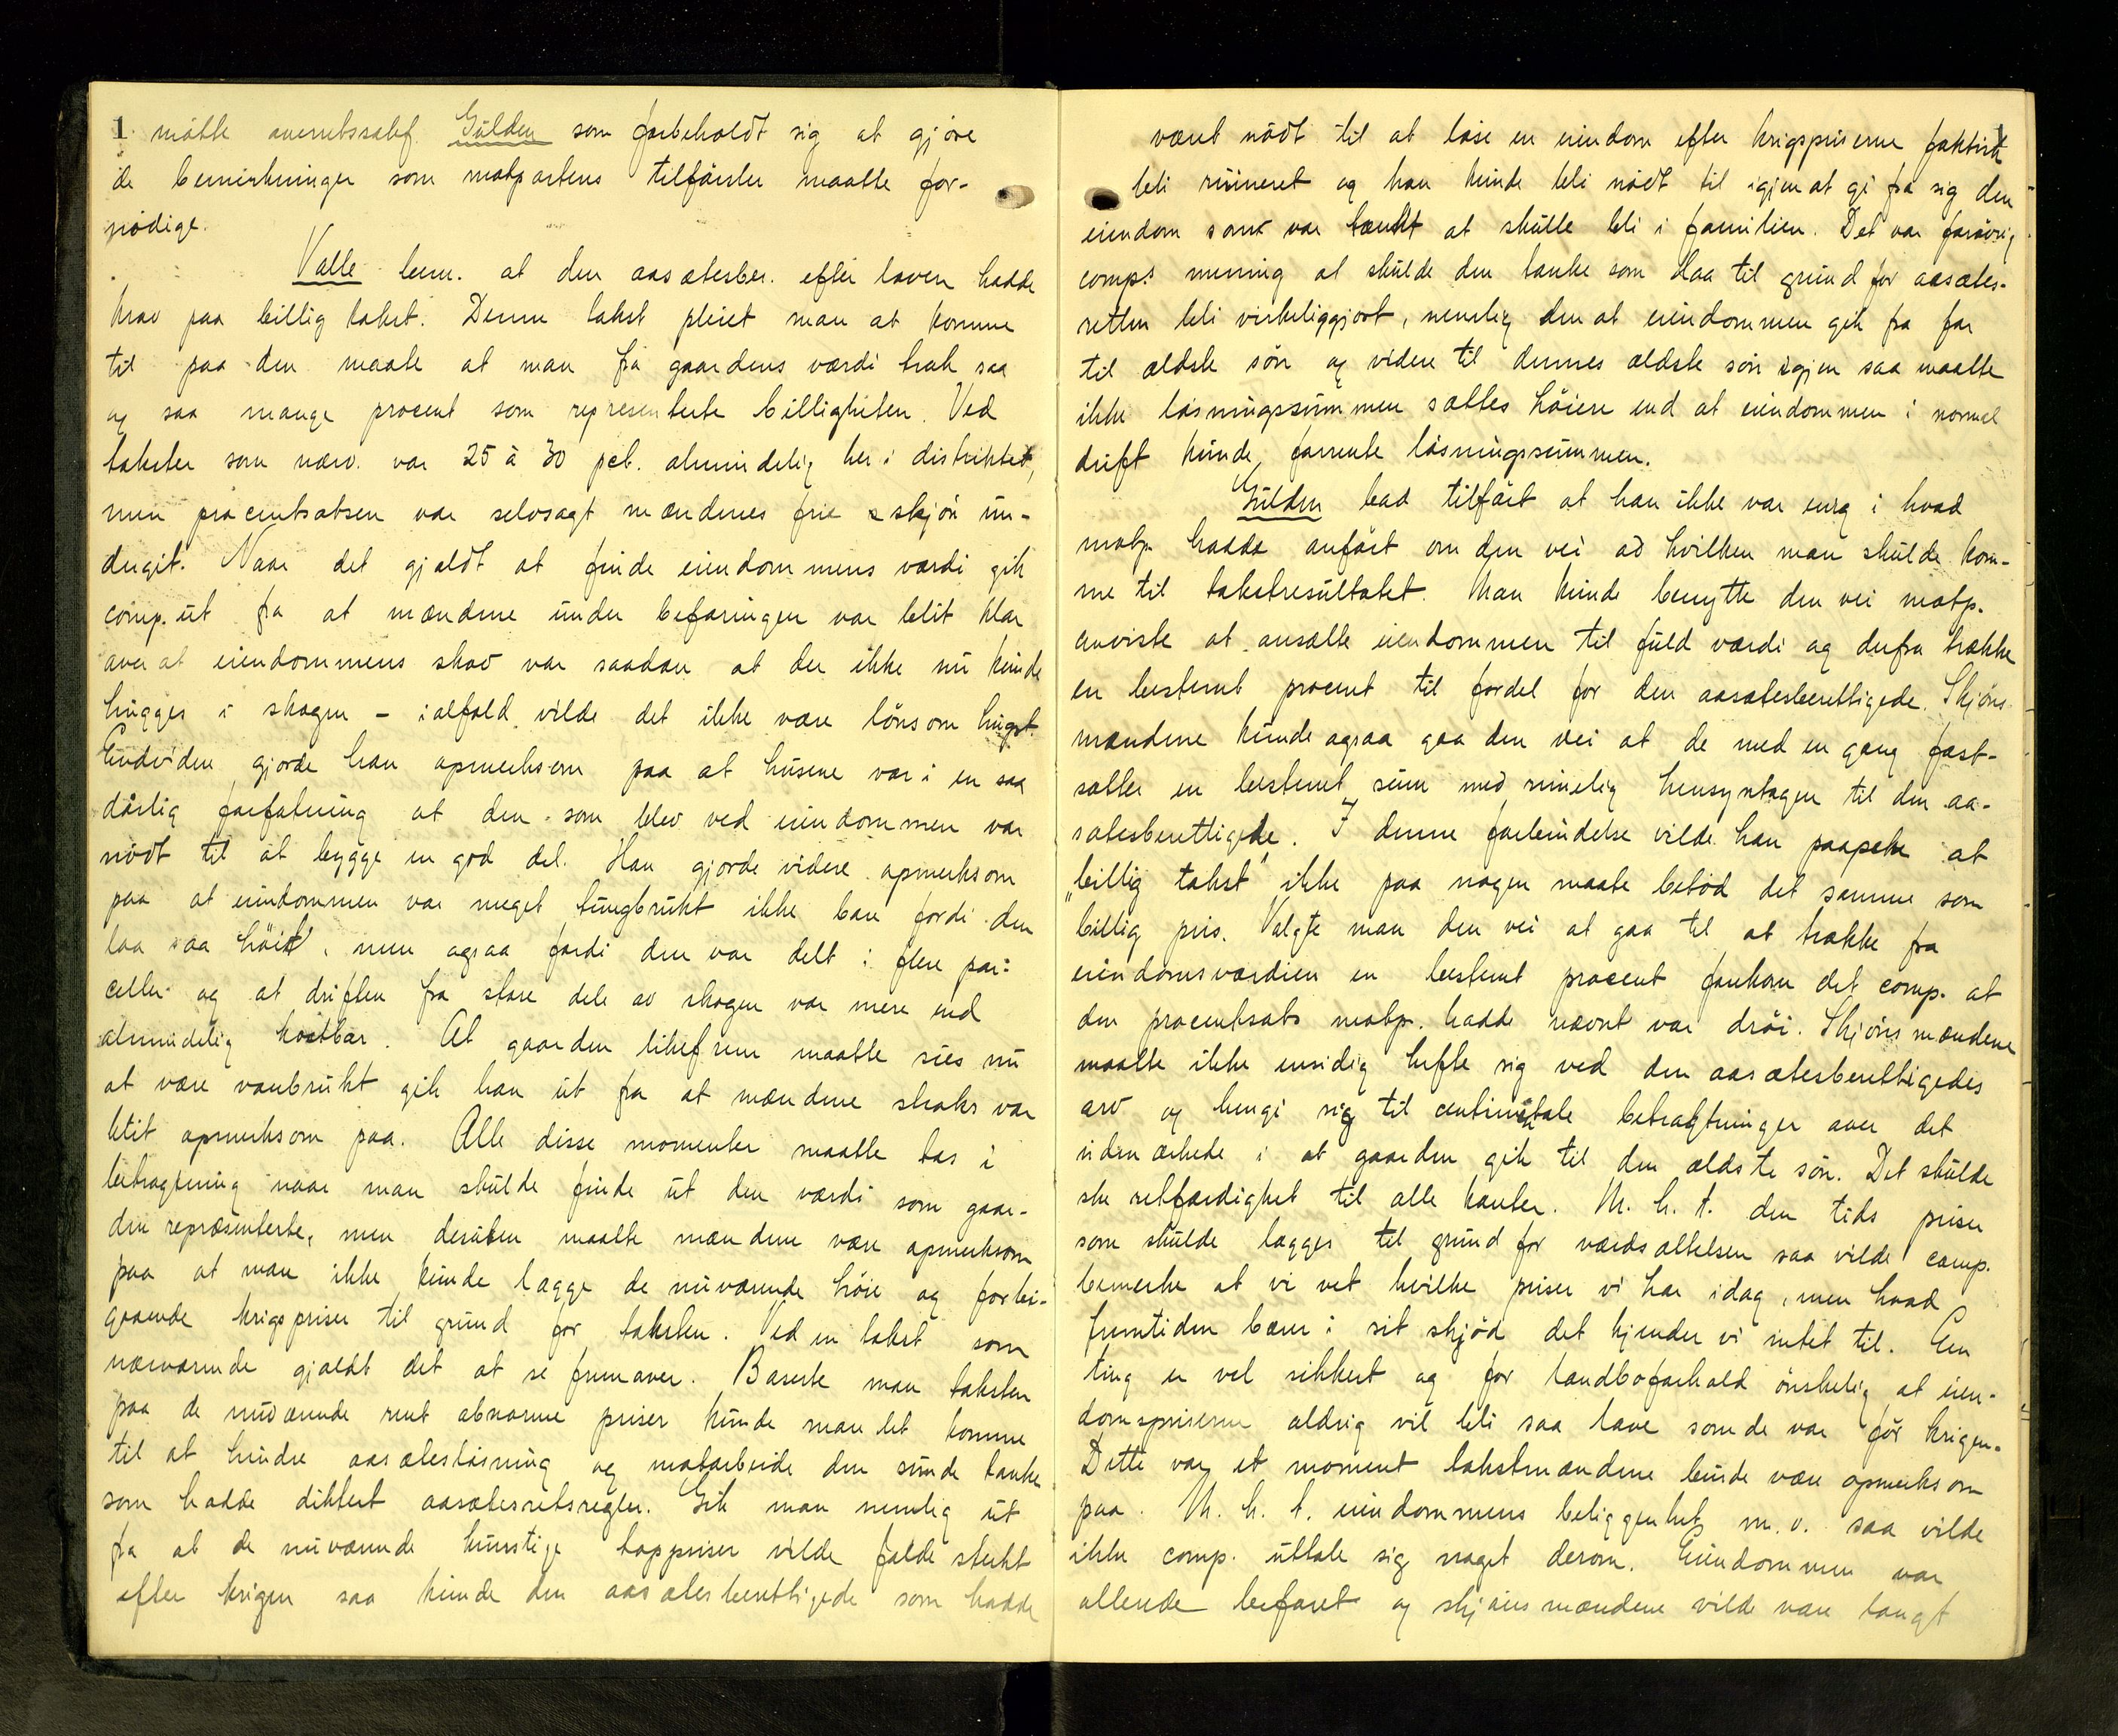 1 mötte overretssakf. Gulden som forbeholdt sig at gjöre
de bemerkninger som motpartens tilförsler maatte for-
nödige.
Valle bem. at den aasætesber. efter loven hadde
krav paa billig takst. Denne takst pleiet man at komme
til paa den maate at man fra gaardens værdi trak saa
og saa mange procent som representerte billigheten. Ved
takster som nærv. var 25 à 30 pct. almindelig her i distriktet,
men procentsatsen var selvsagt mændenes frie skjön un-
dergit. Naar det gjaldt at finde eiendommens værdi gik
comp. ut fra at mændene under befaringen var blit klar
over at eiendommens skov var saadan at der ikke nu kunde
hugges i skogen - ialfald vilde det ikke være lönsom hugst.
Endvidere gjorde han opmerksom paa at husene var i en saa
dårlig forfatning at den som blev ved eiendommen var
nödt til at bygge en god del. Han gjorde videre opmerksom
paa at eiendommen var meget tungbrukt ikke bare fordi den
laa saa höit, men ogsaa fordi den var delt i flere par-
celler og at driften fra store dele av skogen var mere end
almindelig kostbar. At gaarden likefrem maatte sies nu
at være vanbrukt gik han ut fra at mændene straks var
blit opmerksom paa. Alle disse momenter maatte tas i
betragtning naar man skulde finde ut den værdi som gaar-
den repræsenterte, men desuten maatte mændene være opmerksom
paa at man ikke kunde lægge de nuværende höie og forbi-
gaaende krigspriser til grund for taksten. Ved en takst som
nærværende gjældt det at se fremover. Baserte man taksten
paa de nuværende rent abnorme priser kunde man let komme
til at hindre aasæteslösning og motarbeide den sunde tanke
som hadde diktert aasætesretsregler. Gik man nemlig ut
fra at de nuværende kunstige toppriser vilde falde sterkt
efter krigen saa kunde den aasætesberettigede som hadde
været nödt til at löse en eiendom efter krigspriserne faktisk
bli ruineret og han kunde bli nödt til igjen at gi fra sig den
eiendom som var tænkt at skulle bli i familien. Det var forövrig
comp.s mening at skulde den tanke som laa til grund for aasætes-
retten bli virkeliggjort, nemlig den at eiendommen gik fra far
til ældste sön og videre til dennes ældste sön igjen saa maatte
ikke lösningssummen sættes höiere end at eiendommen i normal
drift kunde forrente lösningssummen.
Gulden bad tilfört at han ikke var enig i hvad
motp. hadde anfört om den vei ad hvilken man skulde kom-
me til takstresultatet. Man kunde benytte den vei motp.
anviste at ansætte eiendommen til fuld værdi og derfra trække
en bestemt procent til fordel for den aasætesberettigede. Skjöns-
mændene kunde ogsaa gaa den vei at de med en gang fast-
satte en bestemt sum med rimelig hensyntagen til den aa-
sætesberettigede. I denne forbindelse vilde han paapeke at
"billig takst" ikke paa nogen maate betöd det samme som
billig pris. Valgte man den vei at gaa til at trække fra
eiendomsværdien en bestemt procent forekom det comp. at
den procentsats motp. hadde nævnt var dröi. Skjönsmændene
maatte ikke ensidig hefte sig ved den aasætesberettigedes
arv og hengi sig til centimentale betragtninger over det
udmerkede i at gaarden gik til den ældste sön. Det skulde
ske retfærdighet til alle kanter. M. h. t. den tids priser
som skulde lægges til grund for værdsættelsen saa vilde comp.
bemerke at vi vet hvilke priser vi har idag, men hvad
fremtiden bærer i sit skjöd det kjender vi intet til. En
ting er vel sikkert og for landboforhold önskelig at eien-
domspriserne aldrig vil bli saa lave som de var för krigen.
Dette var et moment takstmændene burde være opmerksom
paa. M. h. t. eiendommens beliggenhet m. v. saa vilde
ikke comp. uttale sig noget derom. Eiendommen var
allerede befaret og skjönsmændene vilde være langt